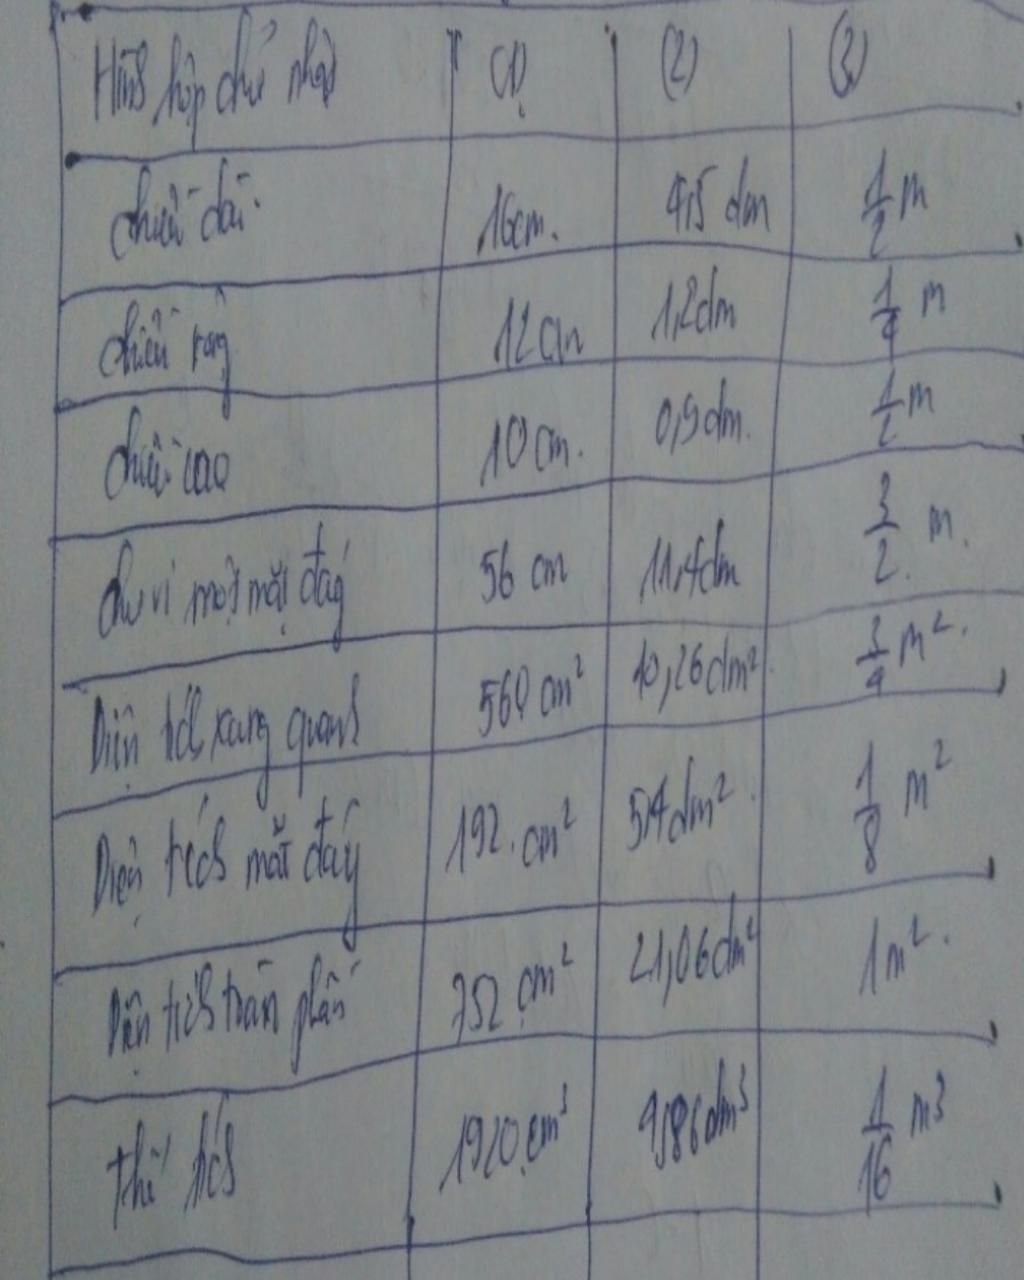 Hình hộp chữ nhật (1) (2) (3)
chiều dài 16cm. 4,5 dm 1/2 m
chiều rộng 12 cm 1,2dm 1/4 m
chiều cao 10 cm. 0,9dm. 1/2 m
chu vi một mặt đáy 56 cm 11,4dm 3/2 m.
Diện tích xung quanh 560 cm² 10,26dm² 3/4 m².
Diện tích mặt đáy 192 cm² 5,4dm² 1/8 m²
Diện tích toàn phần 752 cm² 21,06dm² 1m².
thể tích 1920 cm³ 4,86dm³ 1/16 m³